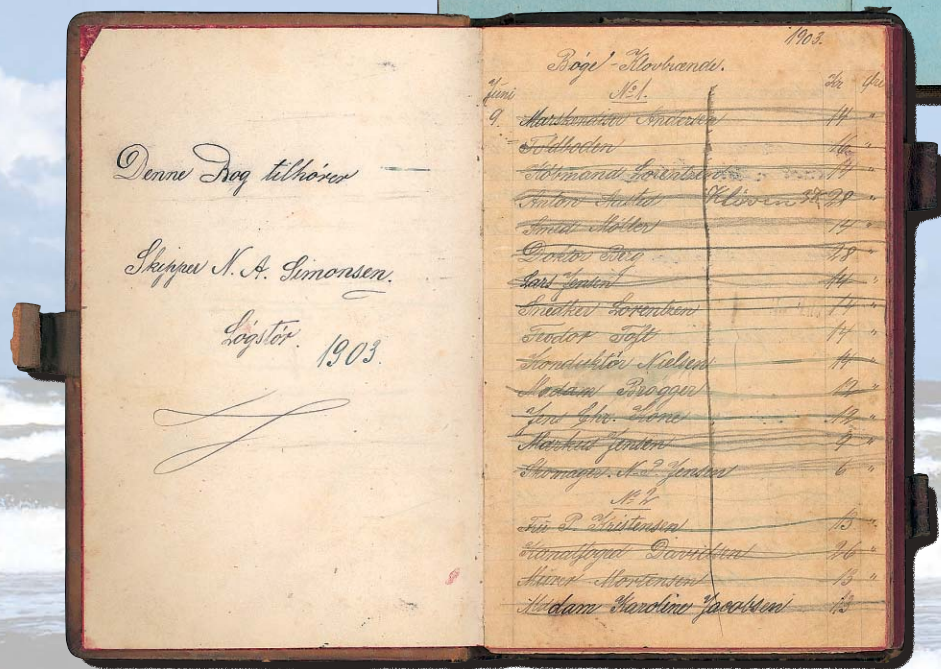 Denne Bog tilhører
Skipper N. A. Simonsen.
Løgstør.
1903.
1903.
Bøge-Klovbrænde.
Juni No 1. Kr Øre
9. Marskendiser Andersen 14 "
Toldboden 16 "
Købmand Lorentzen 14 "
Anton Kløven 28 "
Smed Møller 14 "
Doktor Berg 28 "
Lars Jensen 14 "
Snedker Lorentzen 14 "
Teodor Toft 14 "
Konduktør Nielsen 14 "
Madam Brøgger 12 "
Jens Chr. 12 "
Markus Jensen 9 "
Skomager N. P. Jensen 6 "
No 2
Fru P. Kristensen 13 "
Kanalfoged Davidsen 26 "
Murer Mortensen 13 "
Madam Karoline Jacobsen 13